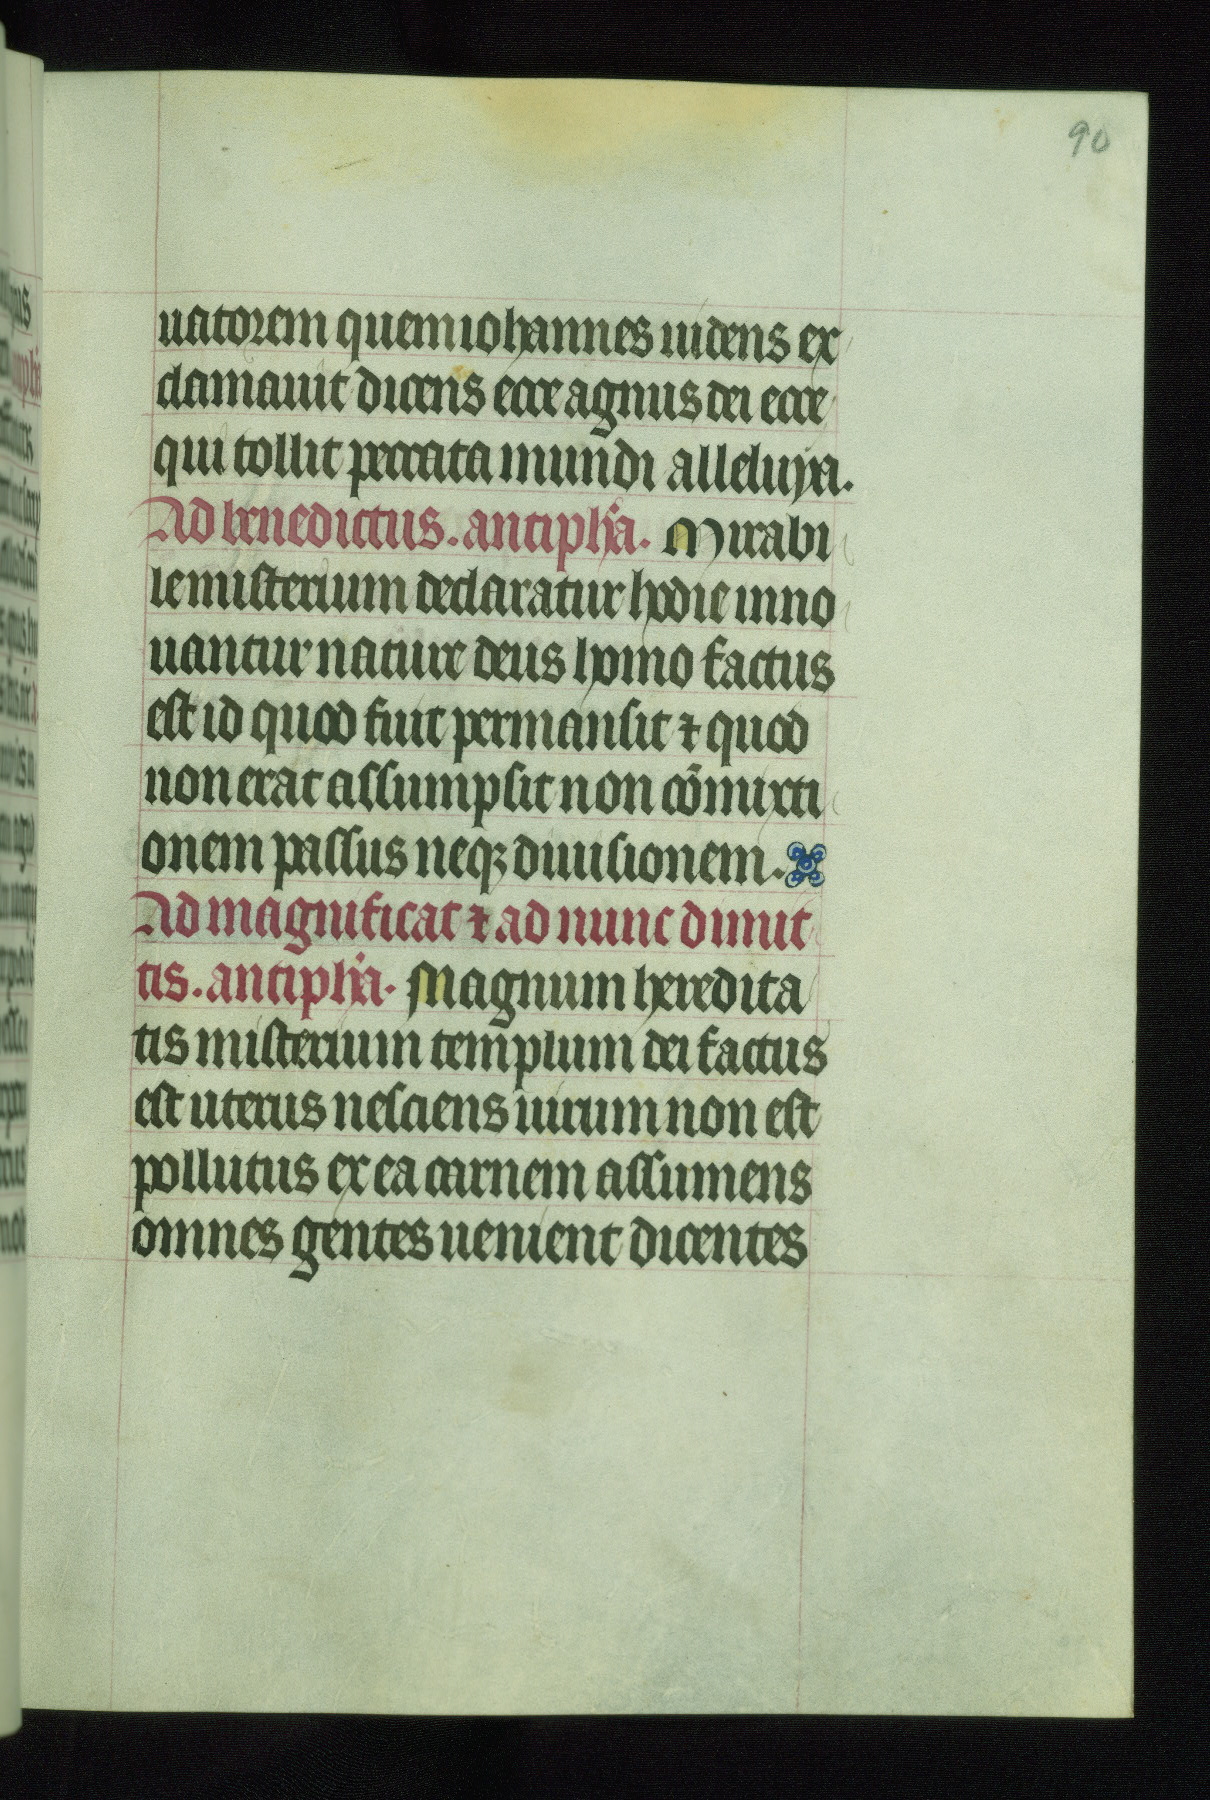 90
uatorem quem iohannes uidens ex
clamauit dicens ecce agnus dei ecce
qui tollit peccata mundi alleluya.
Ad benedictus. antipha. Mirabi
le misterium declaratur hodie inno
uantur nature deus homo factus
est id quod fuit permansit ⁊ quod
non erat assumpsit non cōmixti
onem passus neqꝫ diuisionem.
Ad magnificat ⁊ ad nunc dimit
tis. antipha. Magnum heredita
tis misterium templum dei factus
est uterus nesciens uirum non est
pollutus ex ea carnem assumens
omnes gentes uenient dicentes